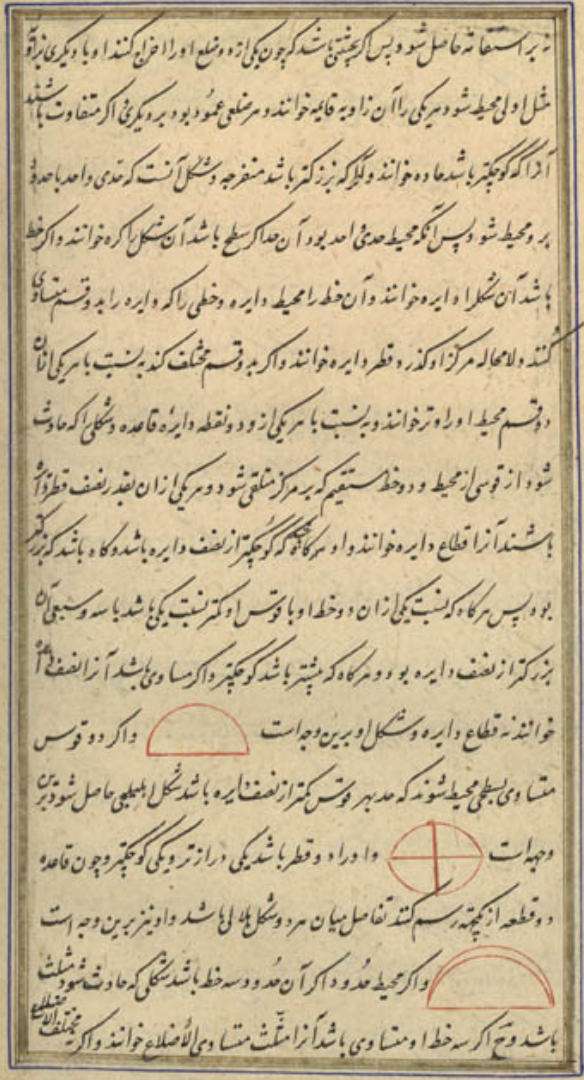 نه بر استقامة حاصل شود و پس اگر بحیثیتی باشد که چون یکی از دو ضلع او را اخراج کنند او با دیگری زاویه
مثل اولی محیط شود هر یکی را آن زاویه قایمه خوانند و هر ضلعی عمود بود بر دیگری و اگر متفاوت باشند
آنرا که کوچکتر باشد حاده خوانند و آنرا که بزرکتر باشد منفرجه و شکل آنست که حدی واحد یا حدود
برو محیط شود پس آنکه محیط حدی واحد بود آن حد اگر سطح باشد آن شکل را کره خوانند و اگر خط
باشد آن شکل را دایره خوانند و آن خط را محیط دایره و خطی را که دایره را بدو قسم متساوی
کند و لا محاله مرکز او گذرد قطر دایره خوانند و اگر بدو قسم مختلف کند به نسبت با هر یکی از آن
دو قسم محیط او را وتر خوانند و به نسبت با هر یکی از دو نقطه دایره قاعده و شکلی را که حادث
شود از قوسی از محیط و دو خط مستقیم که بر مرکز متلقی شود و هر یکی از آن بقدر نصف قطر دایره
باشند آنرا قطاع دایره خوانند و او هرگاه که کوچکتر از نصف دایره باشد و گاه باشد که بزرکتر
بود پس هرگاه که نسبت یکی از آن دو خط او با قوس او کمتر نسبت یکی باشد با سه و سبعی آن
بزرکتر از نصف دایره بود و هرگاه که بیشتر باشد کوچکتر و اگر مساوی باشد آنرا نصف دایره
خوانند نه قطاع دایره و شکل او برین وجه است و اگر دو قوس
متساوی بسطحی محیط شوند که هر قوس کمتر از نصف دایره باشد شکل اهلیلجی حاصل شود برین
وجه است و او را دو قطر باشد یکی درازتر و یکی کوچکتر و چون قاعده
دو قطعه از یکجهة رسم کنند تفاضل میان هر دو شکل هلالی باشد و او نیز برین وجه است
و اگر محیط حدود و اگر آن حدود سه خط باشد شکلی که حادث شود مثلث
باشد و ح اگر سه خط او متساوی باشد آنرا مثلث متساوی الأضلاع خوانند و اگر مختلف الاضلاع